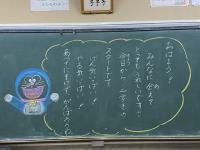 おはよう！
みんなに会えて
とってもうれしいです！
今日から 二学き
スタートです。
げん気いっぱい！
やる気いっぱい！
あすにまで がんばろうね